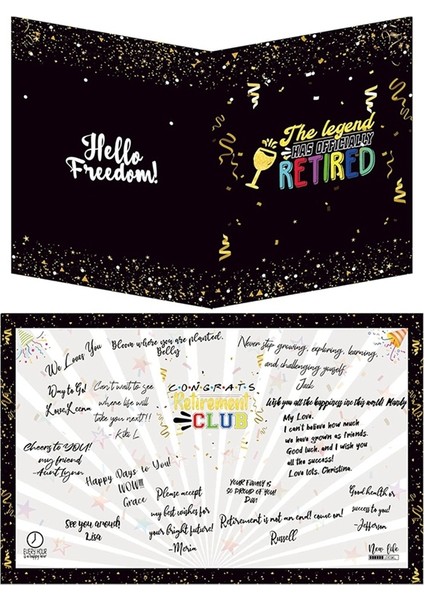 Hello
Freedom!
The legend
HAS OFFICIALLY
RETIRED
We Loves You
Bloom where you are planted.
Bella
Never stop growing, exploring, learning,
and challenging yourself.
Jack
Day to Go!
Love, Keena
Can't wait to see
where life will
take you next!!
- Kiki L
CONGRATS
Retirement
CLUB
Wish you all the happiness in this world Mandy
My Love.
I can't believe how much
we have grown as friends.
Good luck, and I wish you
all the success!
Love lots, Christina.
Cheers to YOU!
my friend
-Aunt Lynn
Happy Days to You!
WOW!!!
Grace
Please accept
my best wishes for
your bright future!
-Maria
YOUR FAMILY IS
SO PROUD OF YOU!
Dan
Good health or
success to you!
-Jefferson
See you around!
Lisa
Retirement is not an end! come on!
Russell
EVERY HOUR
IS A HAPPY HOUR
New life